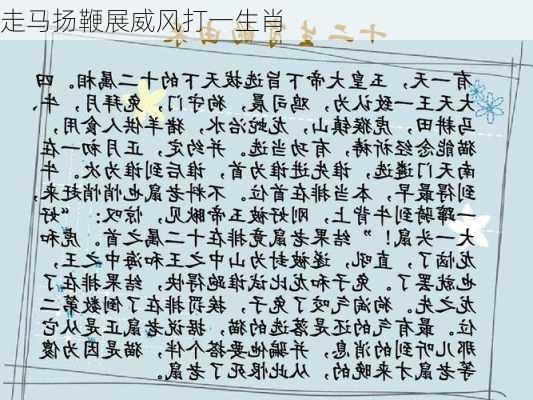 走马扬鞭展威风打一生肖
十二生肖的由来
有一天，玉皇大帝下旨选拔天下的十二属相。四
大天王一致认为，鸡司晨，狗守门，兔拜月，牛、
马耕田，虎猴镇山，龙蛇治水，猪羊供人食用，
猫能念经祈祷，有功当选。并约定，正月初一在
南天门遴选，谁先进谁为首，谁后到谁为次。牛
到得最早，本当排在首位。不料老鼠也悄悄赶来，
一蹿骑到牛背上，刚好被玉帝瞅见，惊叹：“好
大一头鼠！”结果老鼠竟排在十二属之首。虎和
龙恼了，直吼，遂被封为山中之王和海中之王，
也就罢了。兔子和龙比试谁跑得快，结果排在了
龙之先。狗淘气咬了兔子，挨罚排在了倒数第二
位。最有气的还是落选的猫，据说老鼠正是从它
那儿听到的消息，并骗他要搭个伴，猫是因为傻
等老鼠才来晚的，从此恨死了老鼠。